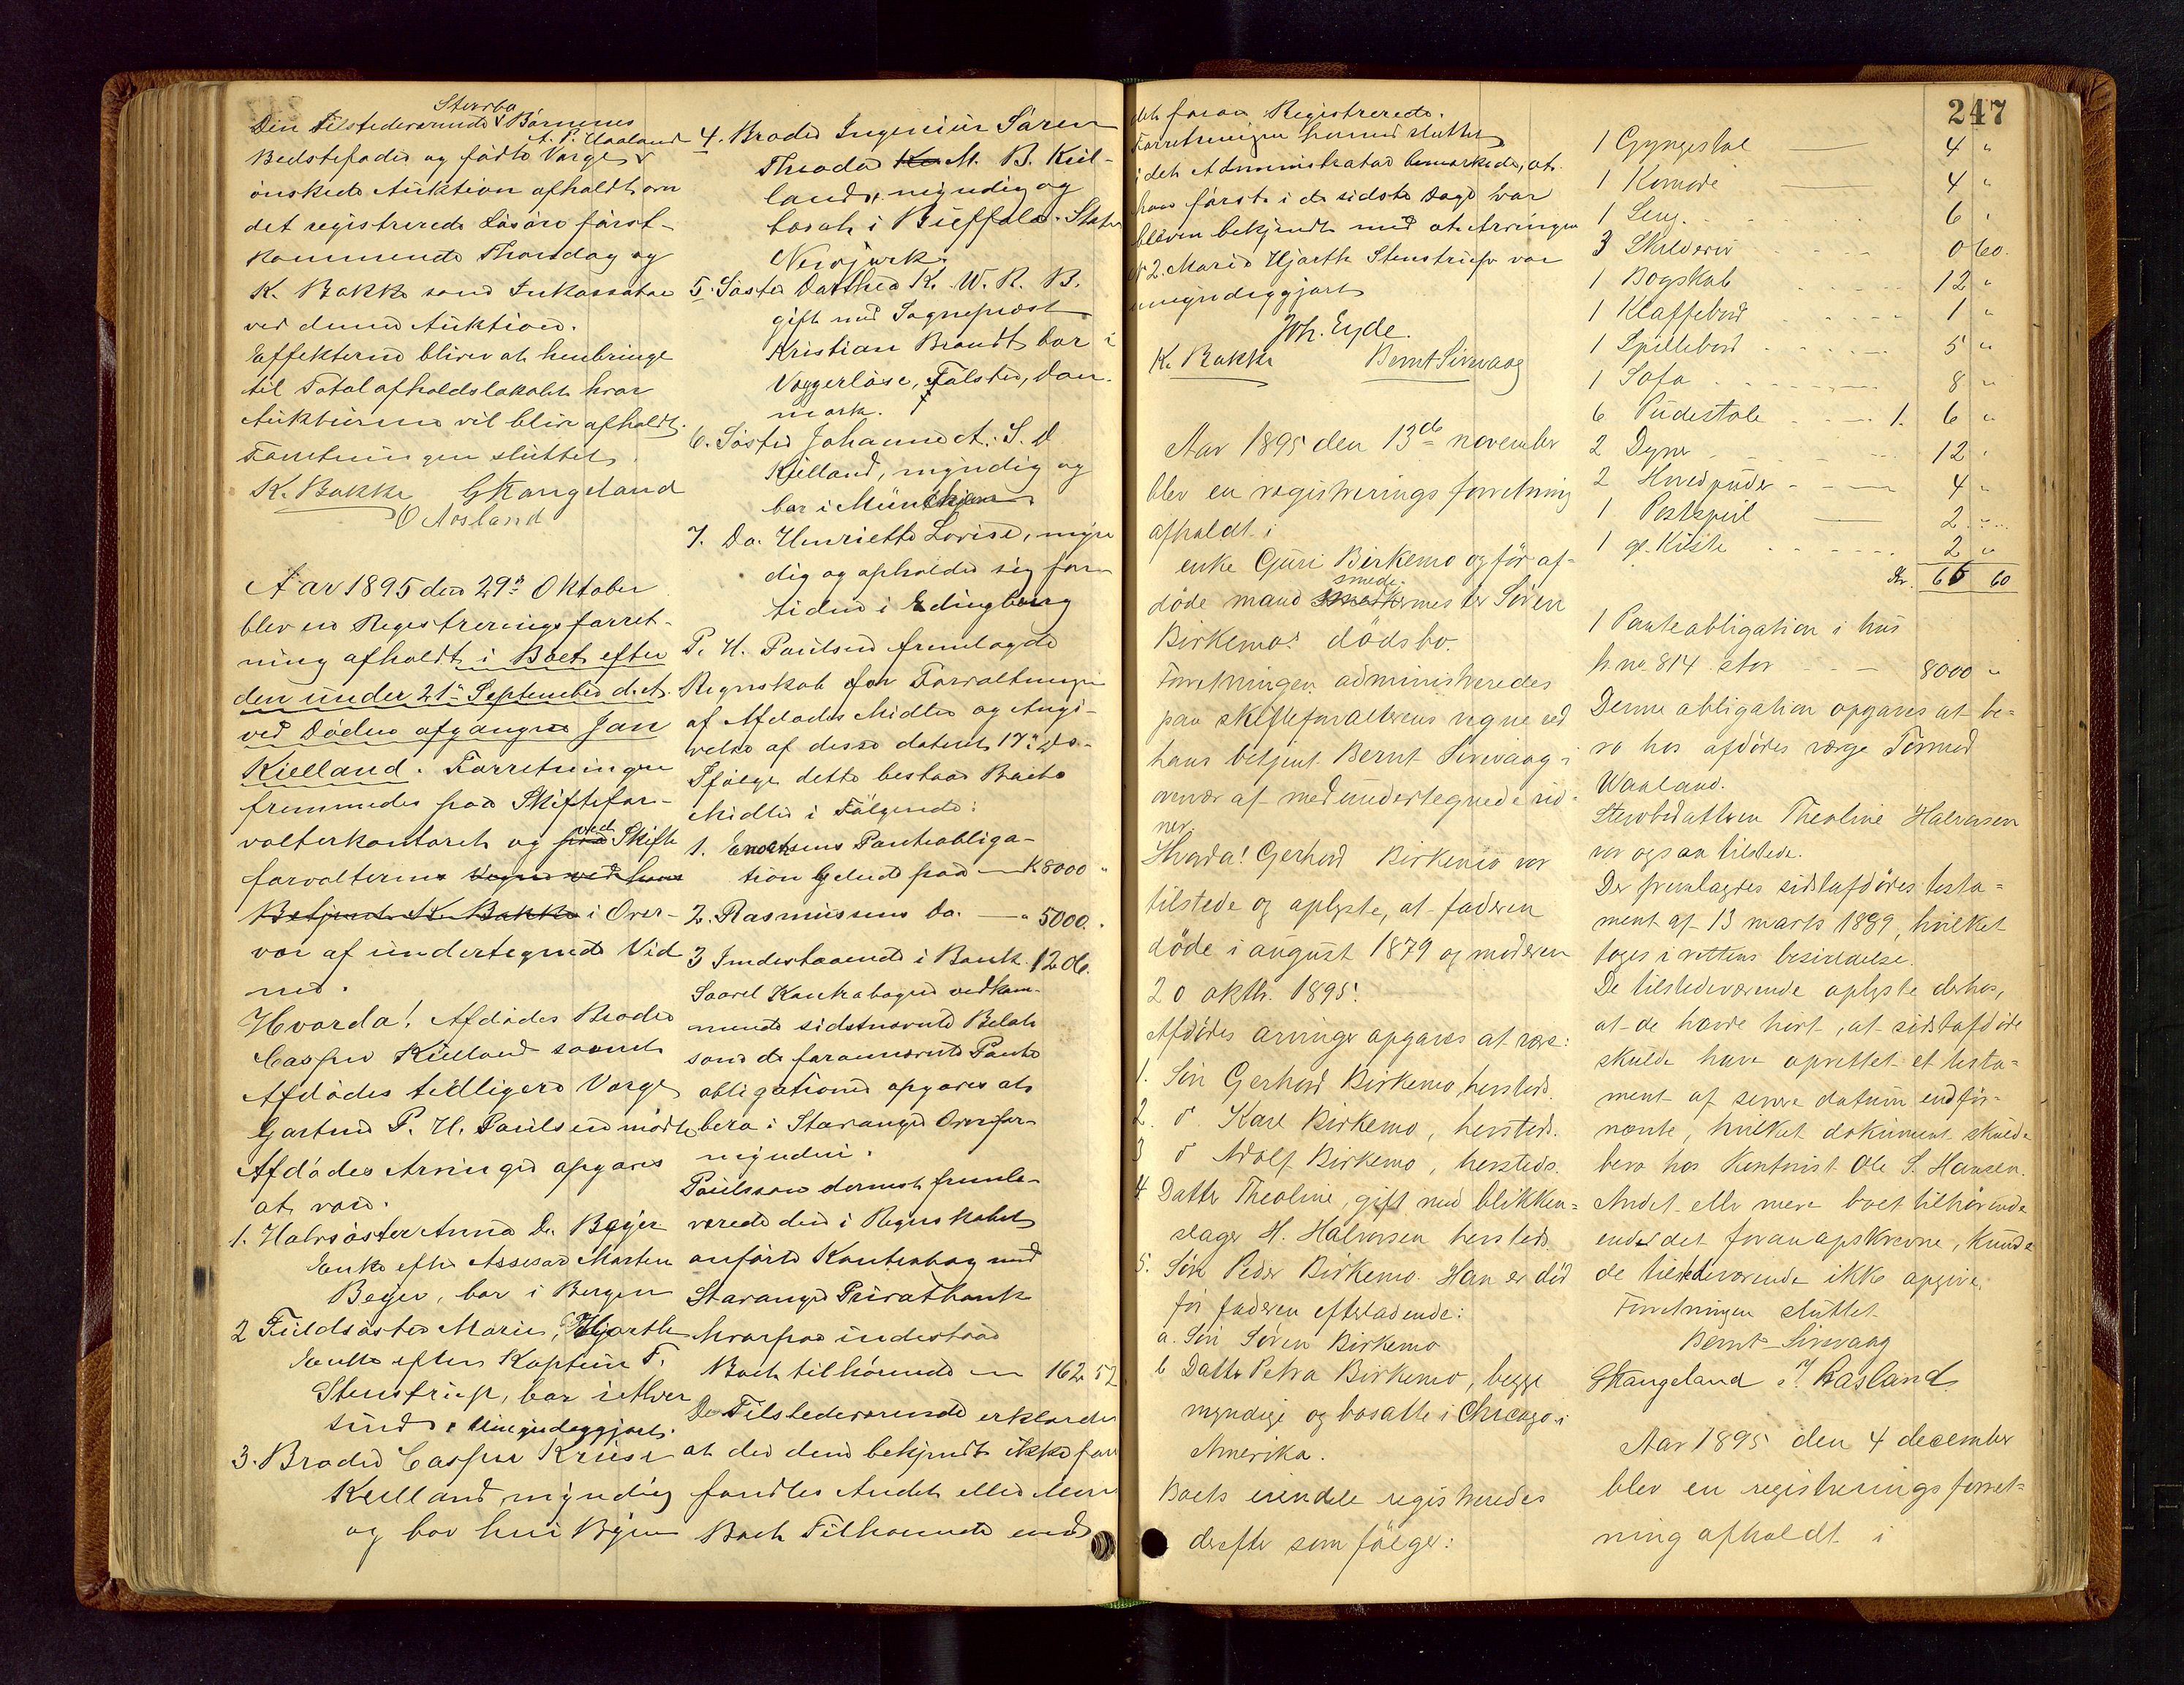 Den Tilstedeværende Stervbo Børnenes
Bedstefader og fødte Værge A. P. Uaaland
ønskede Auktion afholdt over
det registrerede Løsøre først-
kommende Thorsdag og
K. Bakke som Inkassator
ved denne Auktion.
Effekterne bliver at henbringe
til Totalafholdslokalet hvor
Auktionen vil blive afholdt.
Forretningen sluttet.
K. Bakke GSkangeland
O Aasland
Aar 1895 den 29de Oktober
blev en Registreringsforret-
ning afholdt i Boet efter
den under 21de September d.A.
ved Døden afgangne Jan
Kielland. Forretningen
fremmedes paa Skiftefor-
valterkontoret og paa ved Skifte
forvalterens Vegne ved hans
Betjent K. Bakke i Over-
vær af undertegnede Vid
ner.
Hvorda! Afdødes Broder
Casper Kielland samt
Afdødes tidligere Værge
Gartner P. H. Poulsen mødte
Afdødes Arvinger opgaves
at være.
1. Halvsøster Anna D. Beyer
Enke efter Assesor Morten
Beyer, bor i Bergen
2 Fuldsøster Marie, Hjorth
Enke efter Kaptein F.
Stenstrup, bor i
sund, Umyndiggjort.
3. Broder Casper Kruse
Kielland, myndig
og bor her i Byen
4. Broder Ingeniør Søren
Theodor Ke M. B. Kiel-
land, myndig og
bosat i Buffalo. Staten
Newjork.
5. Søster Dorthea K. W. R. B.
gift med Sogneprest
Kristian Brandt bor i
Væggerløse, Falster, Dan-
mark.
6. Søster Johanne A. S. D
Kielland, myndig og
bor i Munchen
7. Do. Henriette Lovise, myn
dig og opholder sig for
tiden i Edingburg
P. H. Poulsen fremlagde
Regnskab for Forvaltningen
af Afdødes Midler og Angi-
velse af disse dateret 17de ds.
Ifølge dette bestaar Boets
Midler i Følgende:
1. Enochsens Pantobliga-
tion lydende paa — K 8000 "
2. Rasmussens do. — " 5000.
3 Indestaaende i Bank. 1206.
Saavel Kontrabogen vedkom-
mende sidstnævnte Beløb
som de forannævnte Pante
obligationer opgaves at
bero i Stavanger Overfor-
mynderi.
Poulsson dernest fremle-
verede den i Regnskabet
anførte Kontrabog med
Stavanger Privatbank
hvorpaa indestaar
Boet tilhørende — 162 52
De Tilstedeværende erklærede
at der dem bekjendt ikke fore
fandtes Andet eller Mere
Boet Tilhørende end
det foran Registrerede.
Forretningen hermed sluttet
idet Administrator bemærkede, at
han først i de sidste Dage var
bleven bekjendt med at Arvingen
No 2. Marie Hjorth Stenstrup var
umyndiggjort
Joh. Eyde.
K. Bakke Bernt Sirevaag
Aar 1895 den 13de november
blev en registreringsforretning
afholdt i
enke Guri Birkemo og før af-
døde mand smedkermester smede Søren
Birkemos dødsbo.
Forretningen administreredes
paa skifteforvalterens vegne ved
hans betjent Bernt Sirevaag i
overvær af medundertegnede vid-
ner.
Hvorda! Gerhard Birkemo var
tilstede og oplyste, at faderen
døde i august 1879 og moderen
20 oktb. 1895.
Afdødes arvinger opgaves at være:
1. Søn Gerhard Birkemo, hersteds.
2. o Karl Birkemo, hersteds.
3 o Adolf Birkemo, hersteds.
4 Datter Theoline, gift med blikken-
slager H. Halvorsen hersteds.
5. Søn Peder Birkemo. Han er død
før faderen efterladende:
a. Søn Søren Birkemo
b Datter Petra Birkemo, begge
myndige og bosatte i Chicago i
Amerika.
Boets eiendele registreredes
derefter som følger:
247
1 Gyngestol — 4 "
1 Komode — 4 "
1 Seng. 6 "
3 Skilderier 0 60.
1 Bogskab 12 "
1 Klaffebord 1 "
1 Spillebord 5 "
1 Sofa 8 "
6 Pudestole 1. 6 "
2 Dyner 12 "
2 Hovedpuder 4 "
1 Postspeil 2 "
1 gl. Kiste 2 "
Kr. 66 60
1 Panteobligation i hus
h no 814 stor 8000 "
Denne obligation opgaves at be-
ro hos afdødes værge Tormod
Waaland.
Stervbodatteren Theoline Halvorsen
var ogsaa tilstede.
Der fremlagdes sidstafdødes testa-
ment af 13 marts 1889, hvilket
toges i rettens besiddelse.
De tilstedeværende oplyste derhos,
at de havde hørt, at sidstafdøde
skulde have oprettet et testa-
ment af senere datum end før-
nævnte, hvilket dokument skulde
bero hos Kontorist Ole S. Hansen.
Andet eller mere boet tilhørende
end det foran opskrevne, kunde
de tilstedeværende ikke opgive.
Forretningen sluttet.
Bernt Sirevaag
GSkangeland Aasland
Aar 1895 den 4 december
blev en registreringsforret-
ning afholdt i